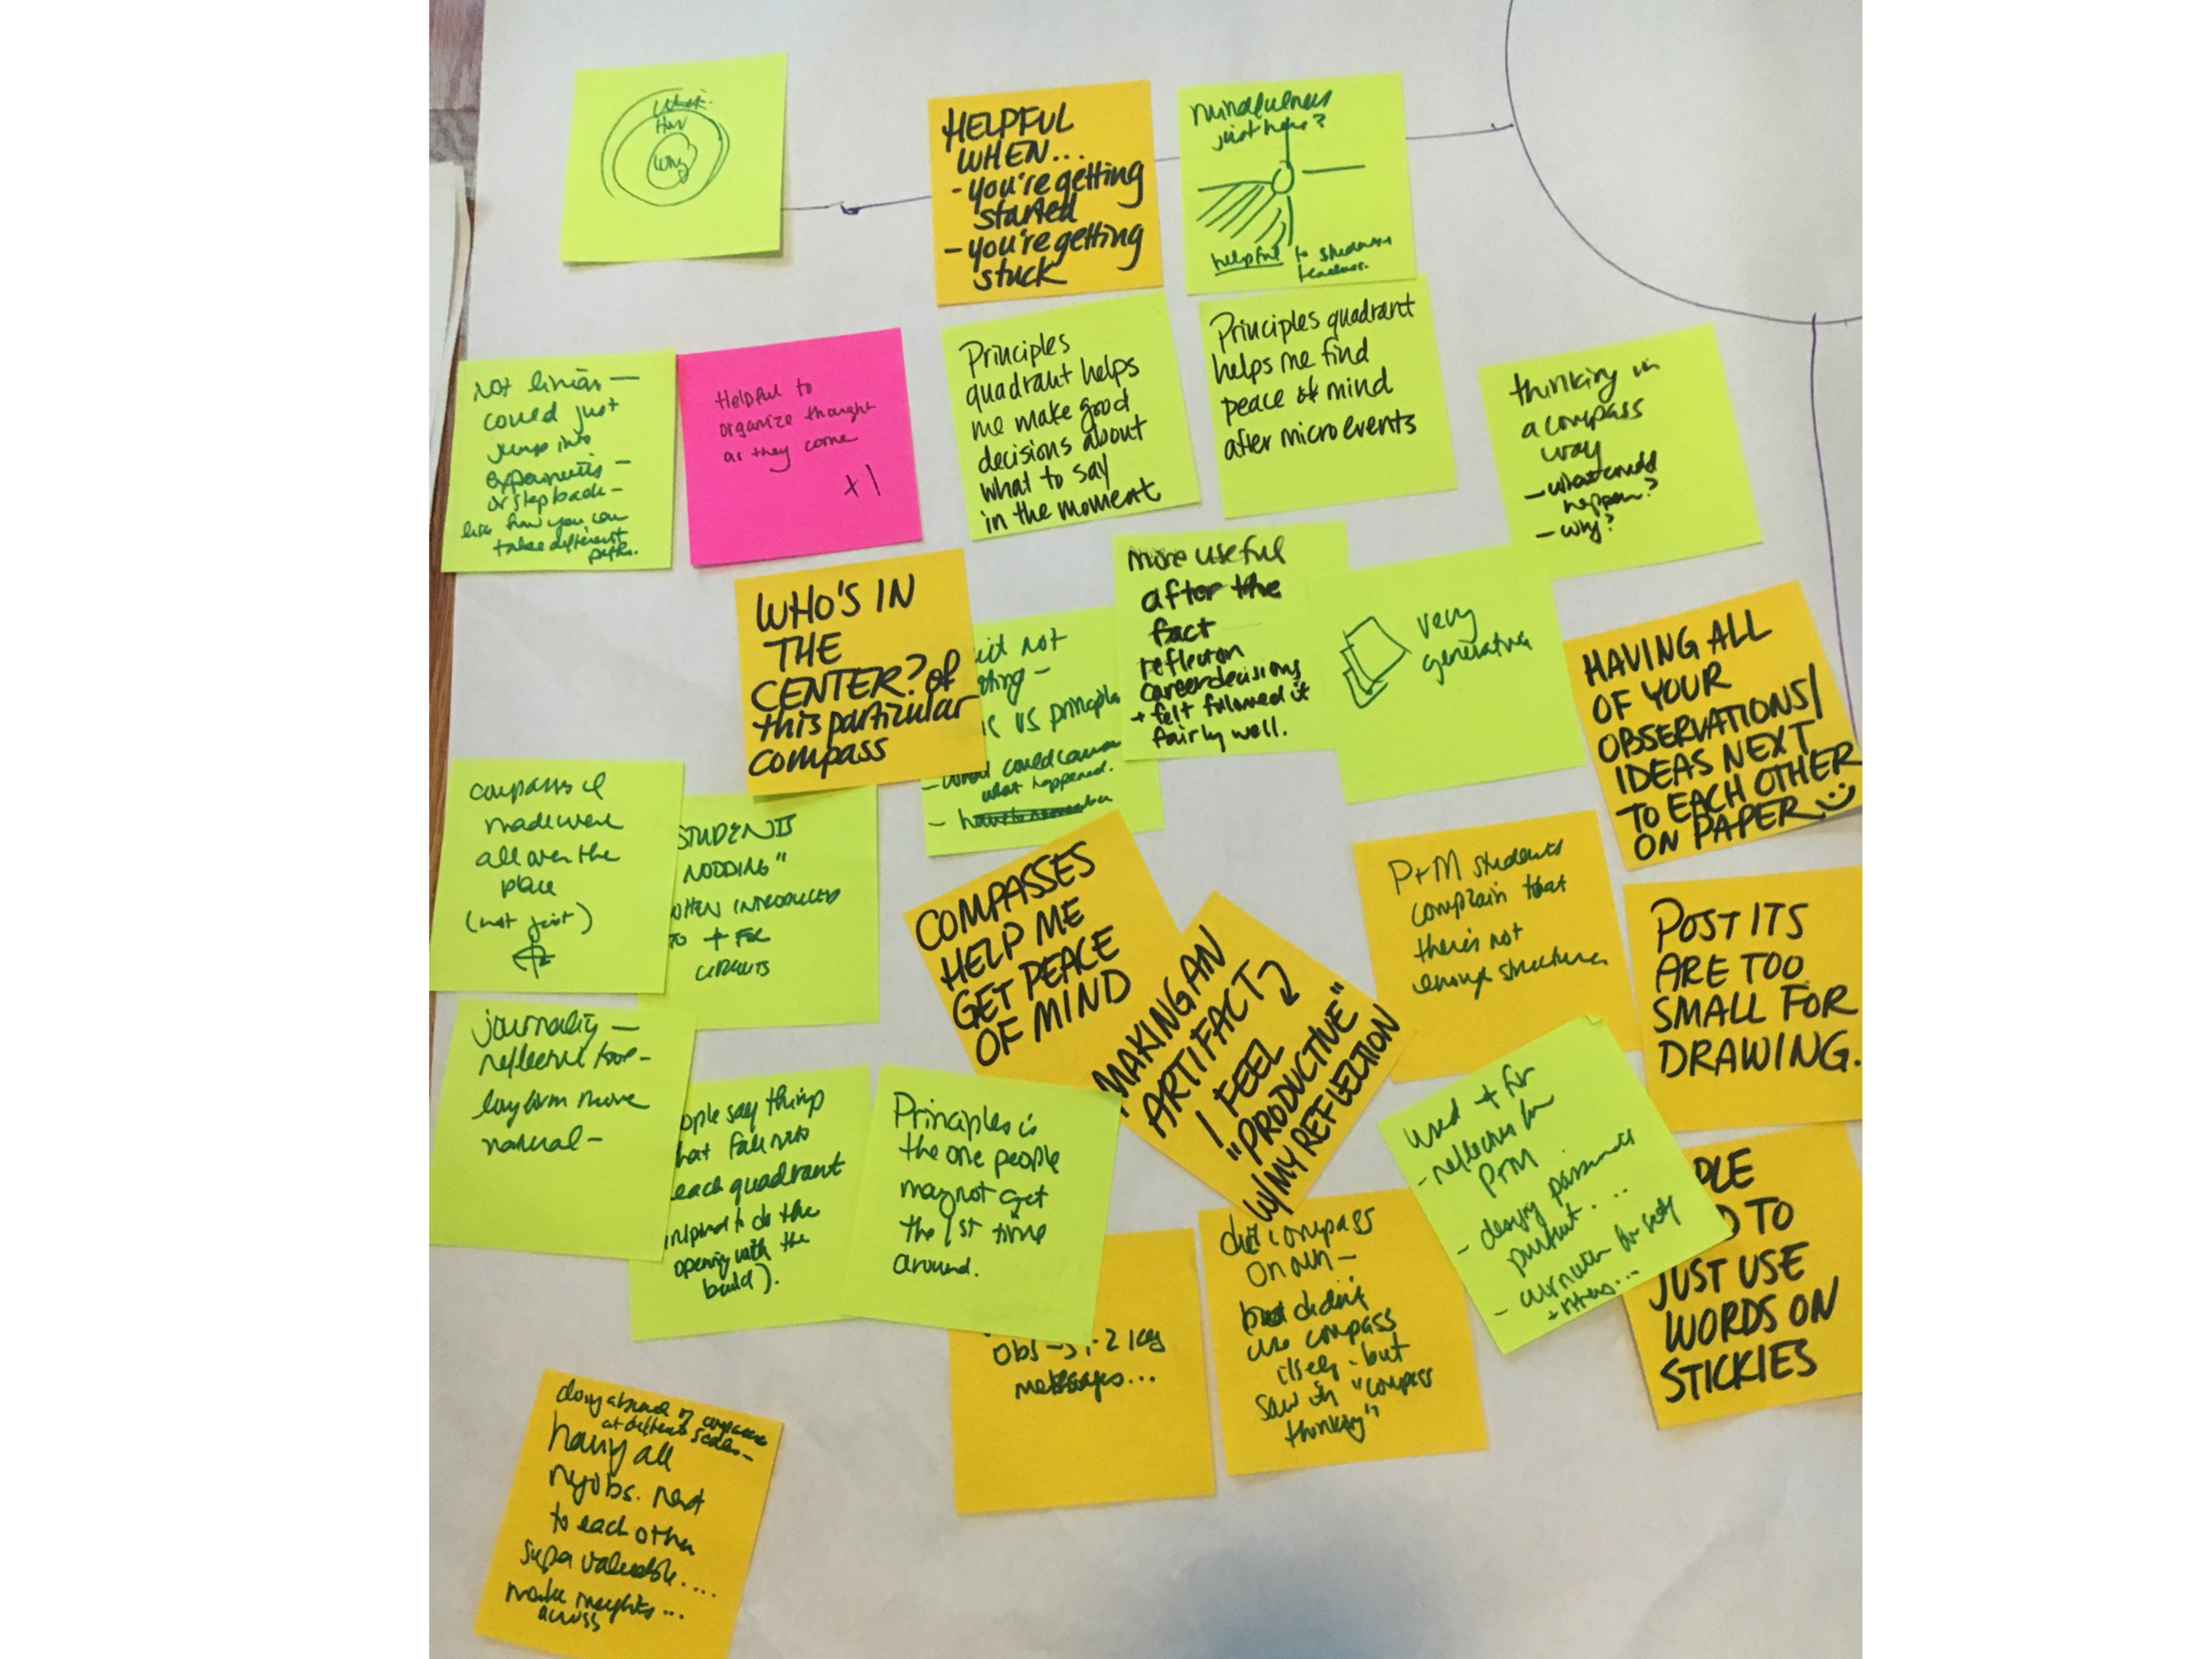 What
How
Why
HELPFUL
WHEN...
- you're getting
started
- you're getting
stuck
mindfulness
just here?
helpful to students
teachers.
not linear —
could just
jump into
experiments —
or step back —
like how you can
take different
paths.
Helpful to
organize thought
as they come
+1
Principles
quadrant helps
me make good
decisions about
what to say
in the moment
Principles quadrant
helps me find
peace of mind
after micro events
thinking in
a compass
way
- what could
happen?
- why?
WHO'S IN
THE
CENTER? of
this particular
compass
not
vs principles
- what could cause
what happened.
more useful
after the
fact
reflection
career decisions
+ felt followed it
fairly well.
very
generative
HAVING ALL
OF YOUR
OBSERVATIONS/
IDEAS NEXT
TO EACH OTHER
ON PAPER
compasses I
made were
all over the
place
(not just)
STUDENTS
NODDING"
WHEN INTRODUCED
TO + FOR
CIRCUITS
COMPASSES
HELP ME
GET PEACE
OF MIND
MAKING AN
ARTIFACT
I FEEL
"PRODUCTIVE"
W/MY REFLECTION
P+M students
complain that
there's not
enough structure
POST ITS
ARE TOO
SMALL FOR
DRAWING.
journaling —
reflective
long form more
natural —
people say things
that fall into
each quadrant
to do the
opening with the
build).
Principles is
the one people
may not get
the 1st time
around.
used + for
- reflection for
P+M
-
-
TO
JUST USE
WORDS ON
STICKIES
obs → 1-2 key
messages...
did compass
on own —
but didn't
use compass
itself - but
saw in "compass
thinking"
doing a bunch of compasses
at different scales —
having all
my obs. next
to each other
super valuable....
make insights...
across